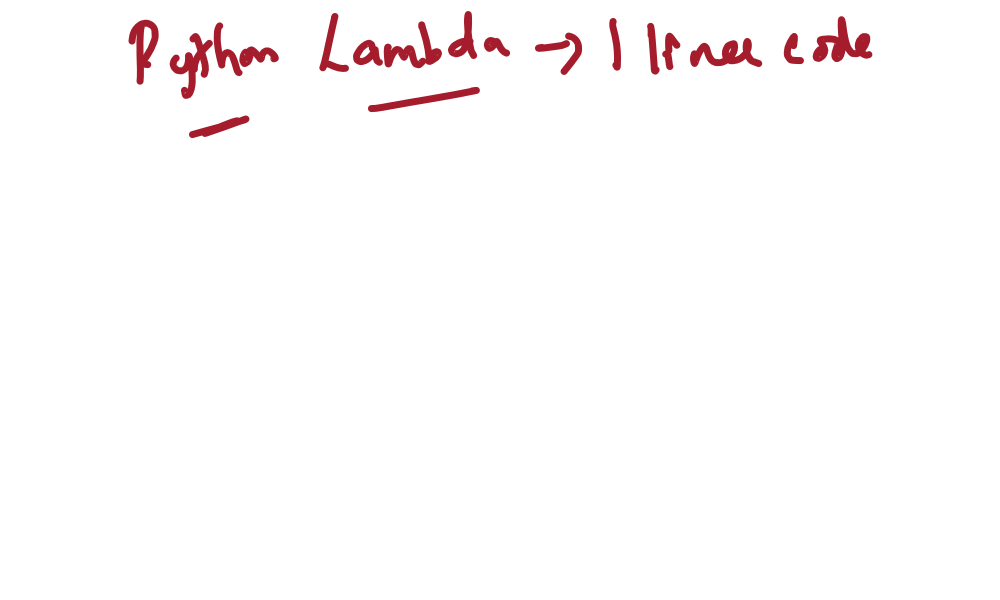 Python Lambda → 1 liner code